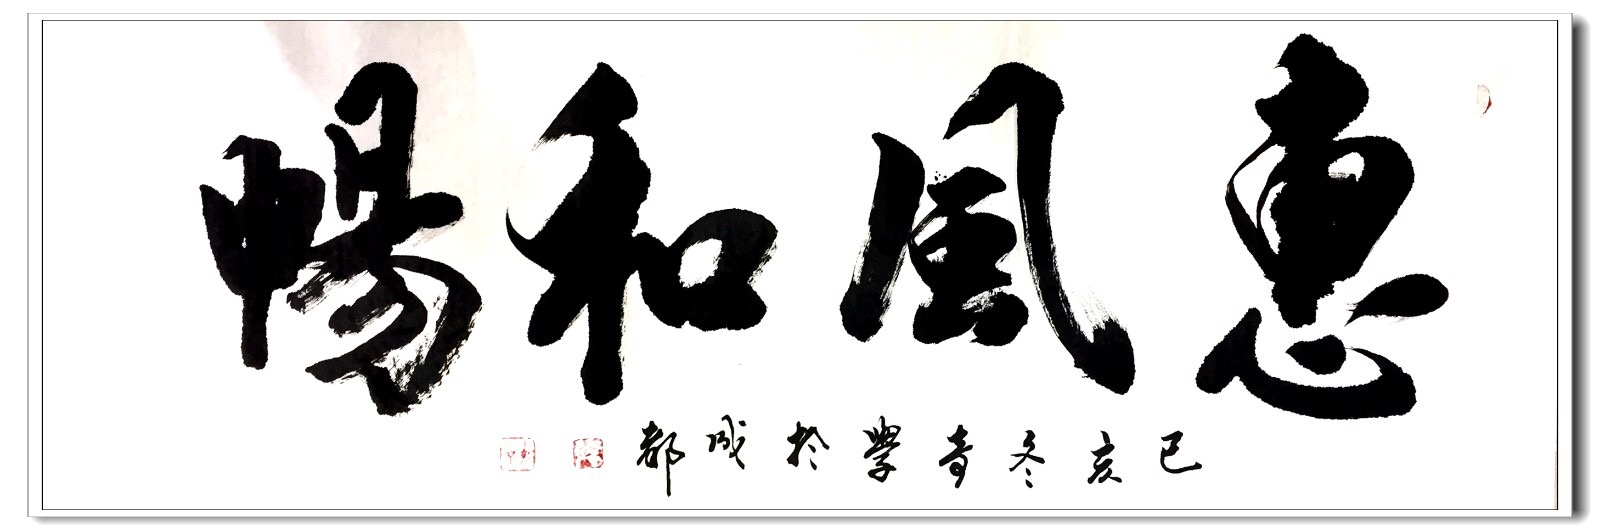 惠風和暢
己亥冬青學於成都